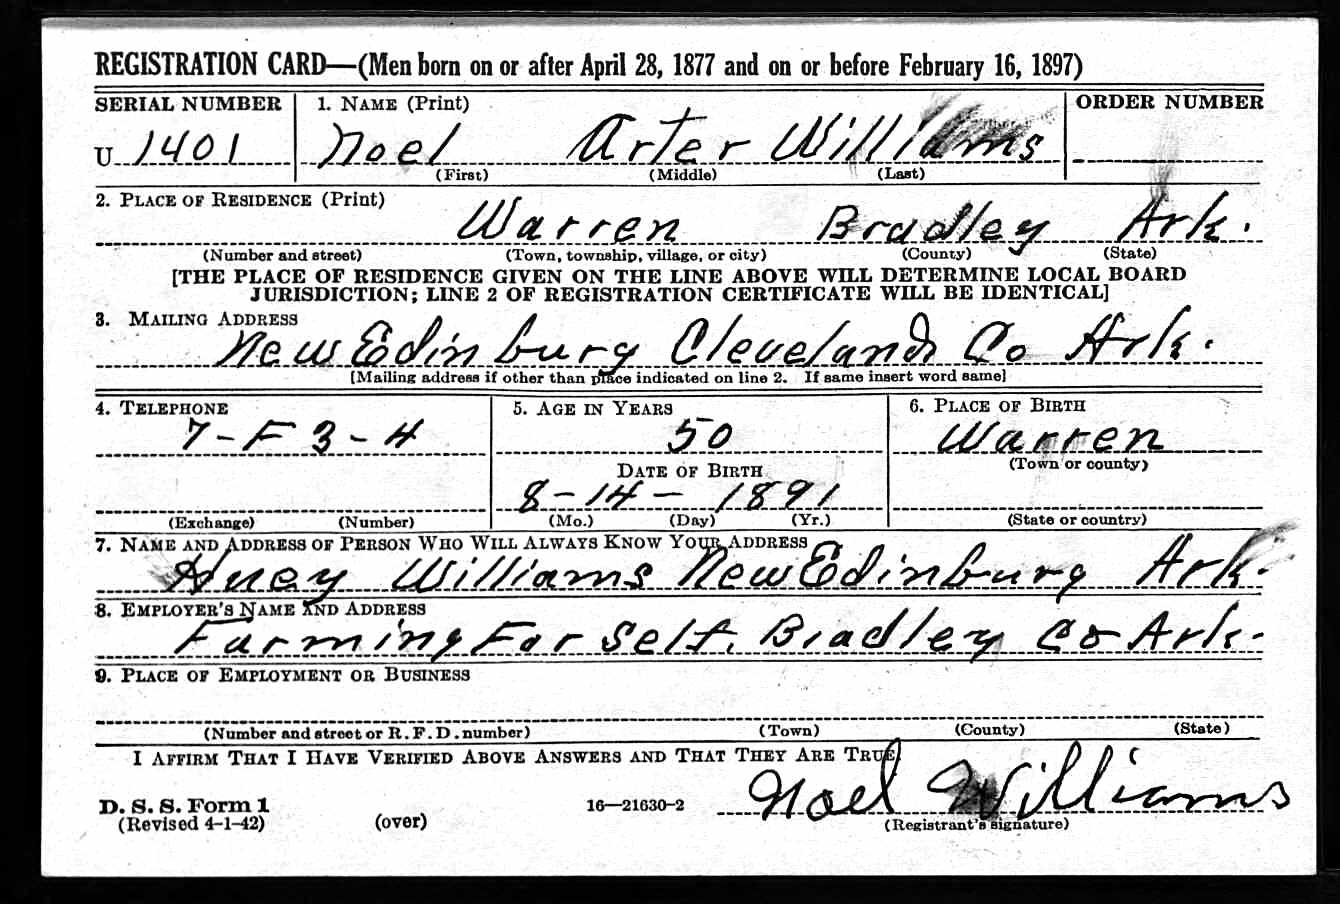 REGISTRATION CARD—(Men born on or after April 28, 1877 and on or before February 16, 1897)
SERIAL NUMBER 1. NAME (Print) ORDER NUMBER
U 1401 Noel Arter Williams
(First) (Middle) (Last)
2. PLACE OF RESIDENCE (Print)
Warren Bradley Ark.
(Number and street) (Town, township, village, or city) (County) (State)
[THE PLACE OF RESIDENCE GIVEN ON THE LINE ABOVE WILL DETERMINE LOCAL BOARD
JURISDICTION; LINE 2 OF REGISTRATION CERTIFICATE WILL BE IDENTICAL]
3. MAILING ADDRESS
New Edinburg Cleveland Co Ark.
[Mailing address if other than place indicated on line 2. If same insert word same]
4. TELEPHONE 5. AGE IN YEARS 6. PLACE OF BIRTH
7-F 3-4 50 Warren
(Town or county)
DATE OF BIRTH
8-14-1891
(Exchange) (Number) (Mo.) (Day) (Yr.) (State or country)
7. NAME AND ADDRESS OF PERSON WHO WILL ALWAYS KNOW YOUR ADDRESS
Huey Williams New Edinburg Ark.
8. EMPLOYER'S NAME AND ADDRESS
Farming For Self. Bradley Co Ark.
9. PLACE OF EMPLOYMENT OR BUSINESS
(Number and street or R. F. D. number) (Town) (County) (State)
I AFFIRM THAT I HAVE VERIFIED ABOVE ANSWERS AND THAT THEY ARE TRUE
Noel Williams
D. S. S. Form 1 16—21630-2
(Revised 4-1-42) (over) (Registrant's signature)